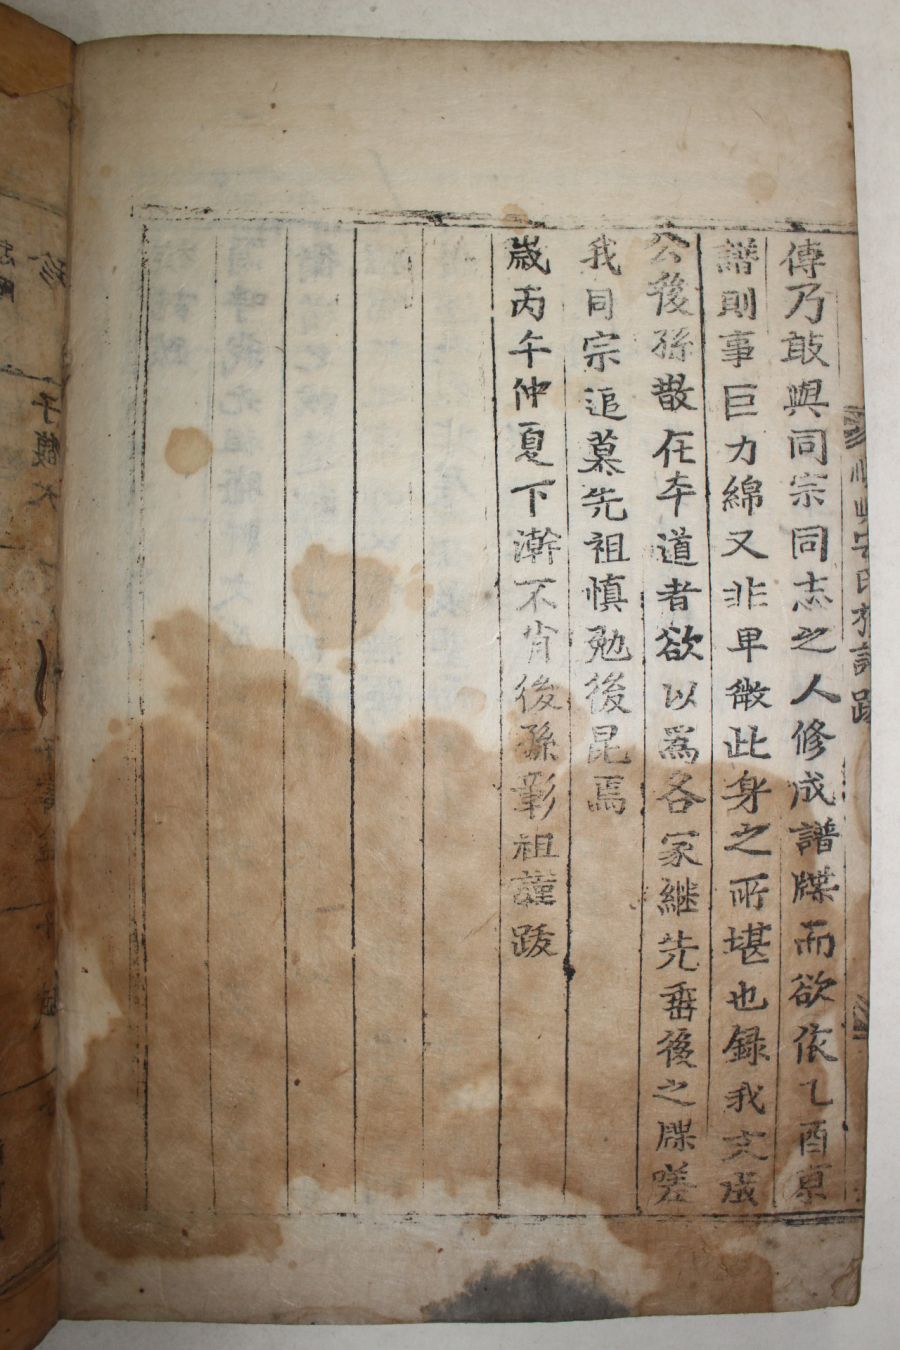 傳乃敢與同宗同志之人修成譜牒而欲依乙酉京
譜則事巨力綿又非卑微此身之所堪也録我文成
公後孫散在本道者欲以爲各家継先垂後之牒嗟
我同宗追慕先祖慎勉後昆焉
歳丙午仲夏下澣不肖後孫彰祖謹跋
順興安氏族譜跋